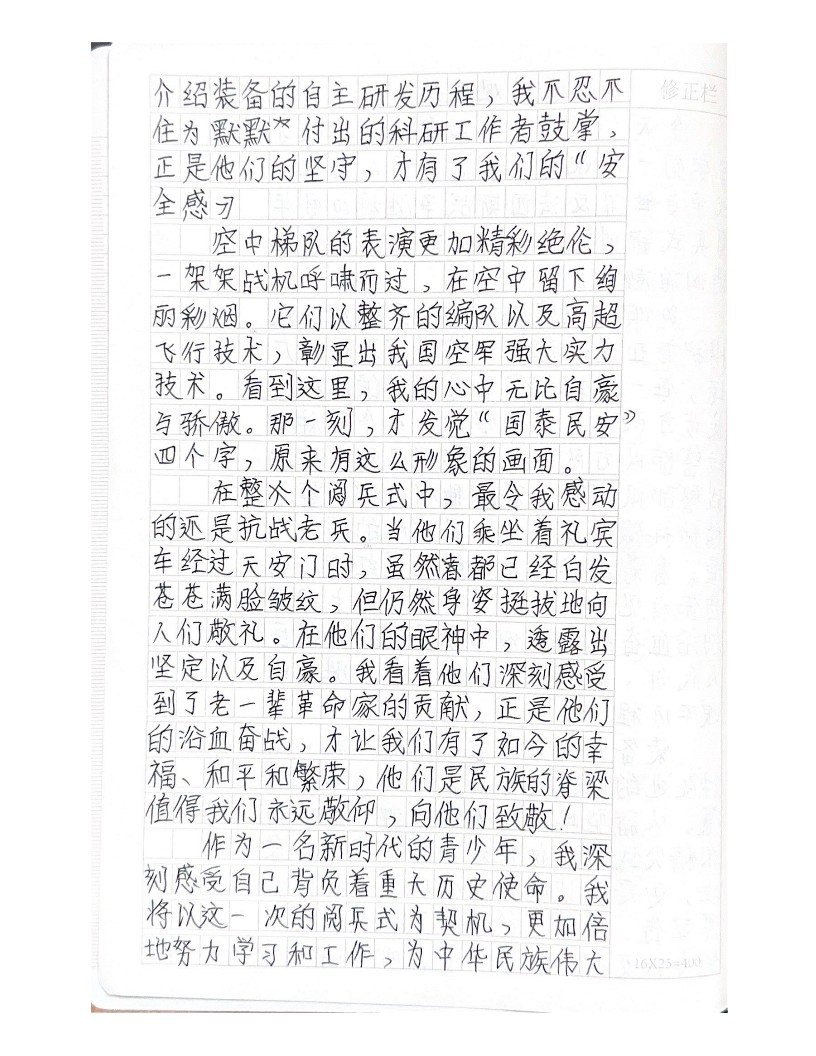 修正栏
介绍装备的自主研发历程，我不忍不
住为默默付出的科研工作者鼓掌，
正是他们的坚守，才有了我们的“安
全感”
空中梯队的表演更加精彩绝伦，
一架架战机呼啸而过，在空中留下绚
丽彩烟。它们以整齐的编队以及高超
飞行技术，彰显出我国空军强大实力
技术。看到这里，我的心中无比自豪
与骄傲。那一刻，才发觉“国泰民安”
四个字，原来有这么形象的画面。
在整个阅兵式中，最令我感动
的还是抗战老兵。当他们乘坐着礼宾
车经过天安门时，虽然都已经白发
苍苍满脸皱纹，但仍然身姿挺拔地向
人们敬礼。在他们的眼神中，透露出
坚定以及自豪。我看着他们深刻感受
到了老一辈革命家的贡献，正是他们
的浴血奋战，才让我们有了如今的幸
福、和平和繁荣，他们是民族的脊梁
值得我们永远敬仰，向他们致敬！
作为一名新时代的青少年，我深
刻感受自己背负着重大历史使命。我
将以这一次的阅兵式为契机，更加倍
地努力学习和工作，为中华民族伟大
16X25=400